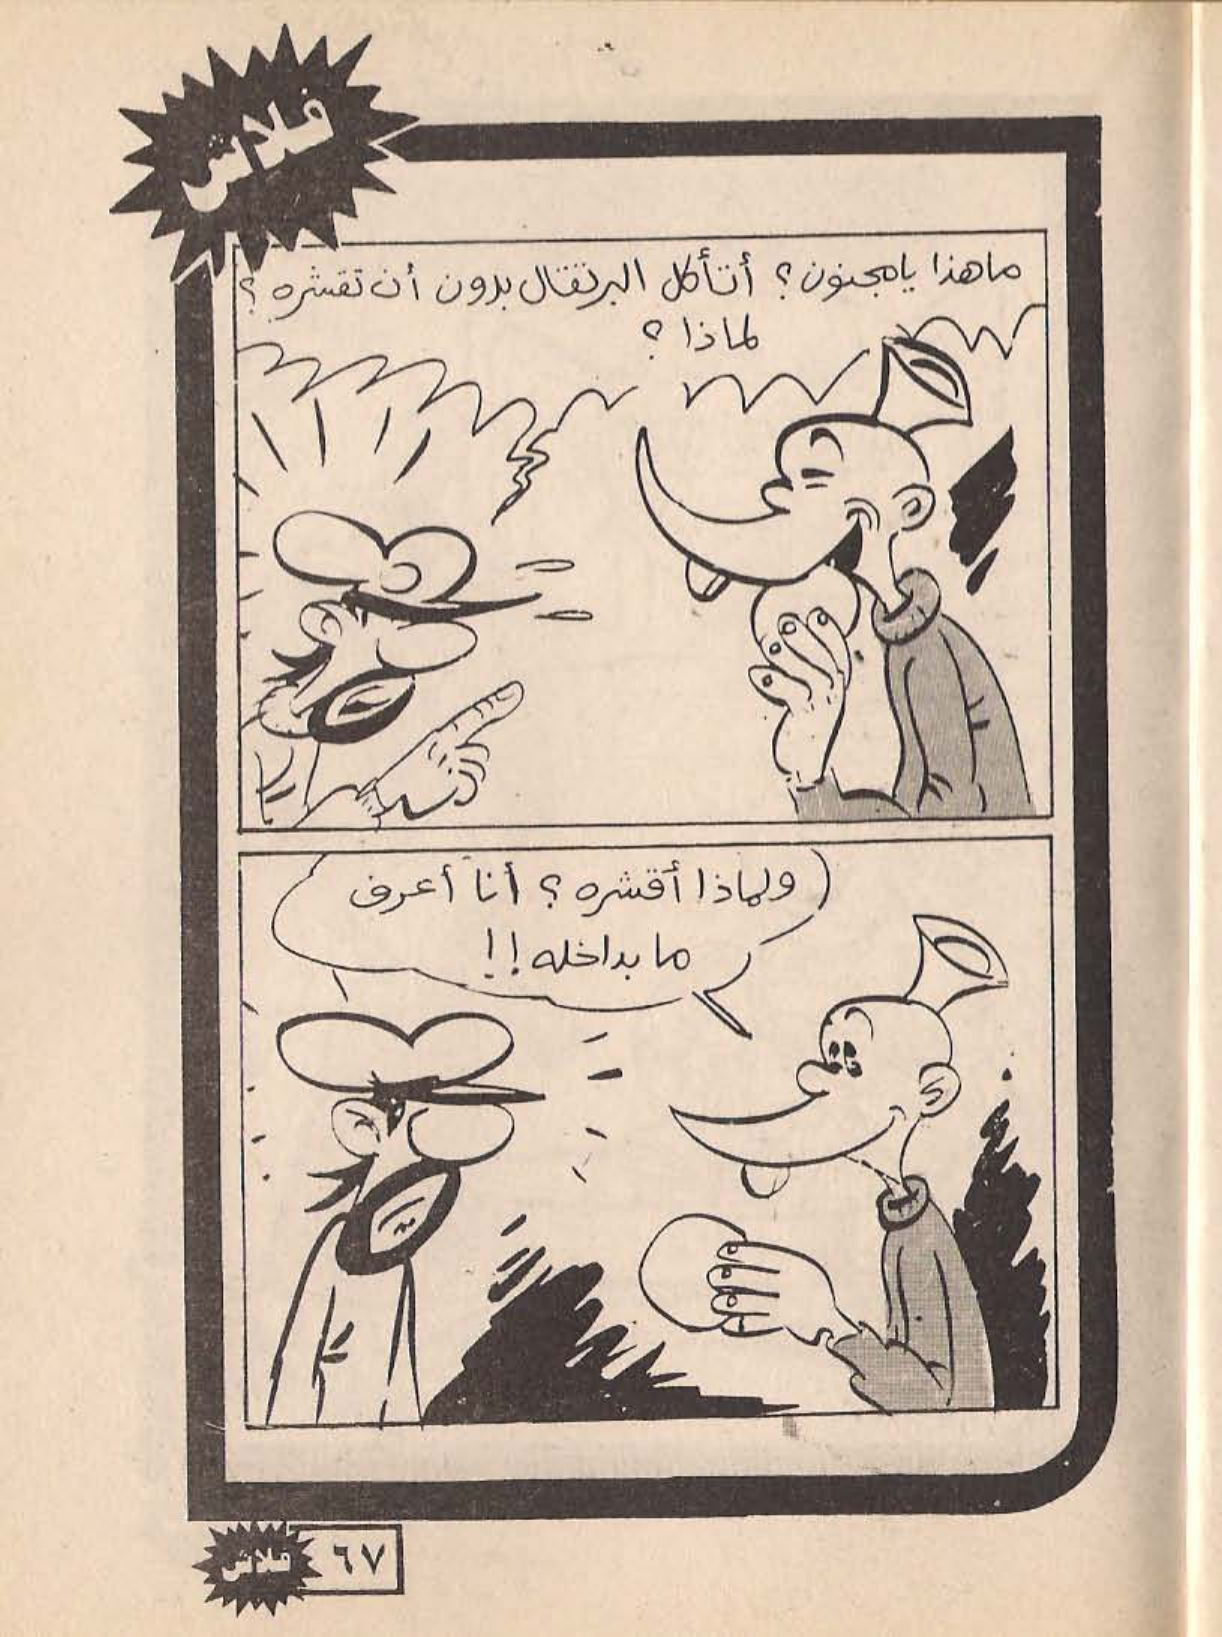 فلاش
ما هذا يا مجنون؟ أتأكل البرتقال بدون أن تقشره؟
لماذا؟
ولماذا أقشره؟ أنا أعرف
ما بداخله!!
فلاش ٦٧